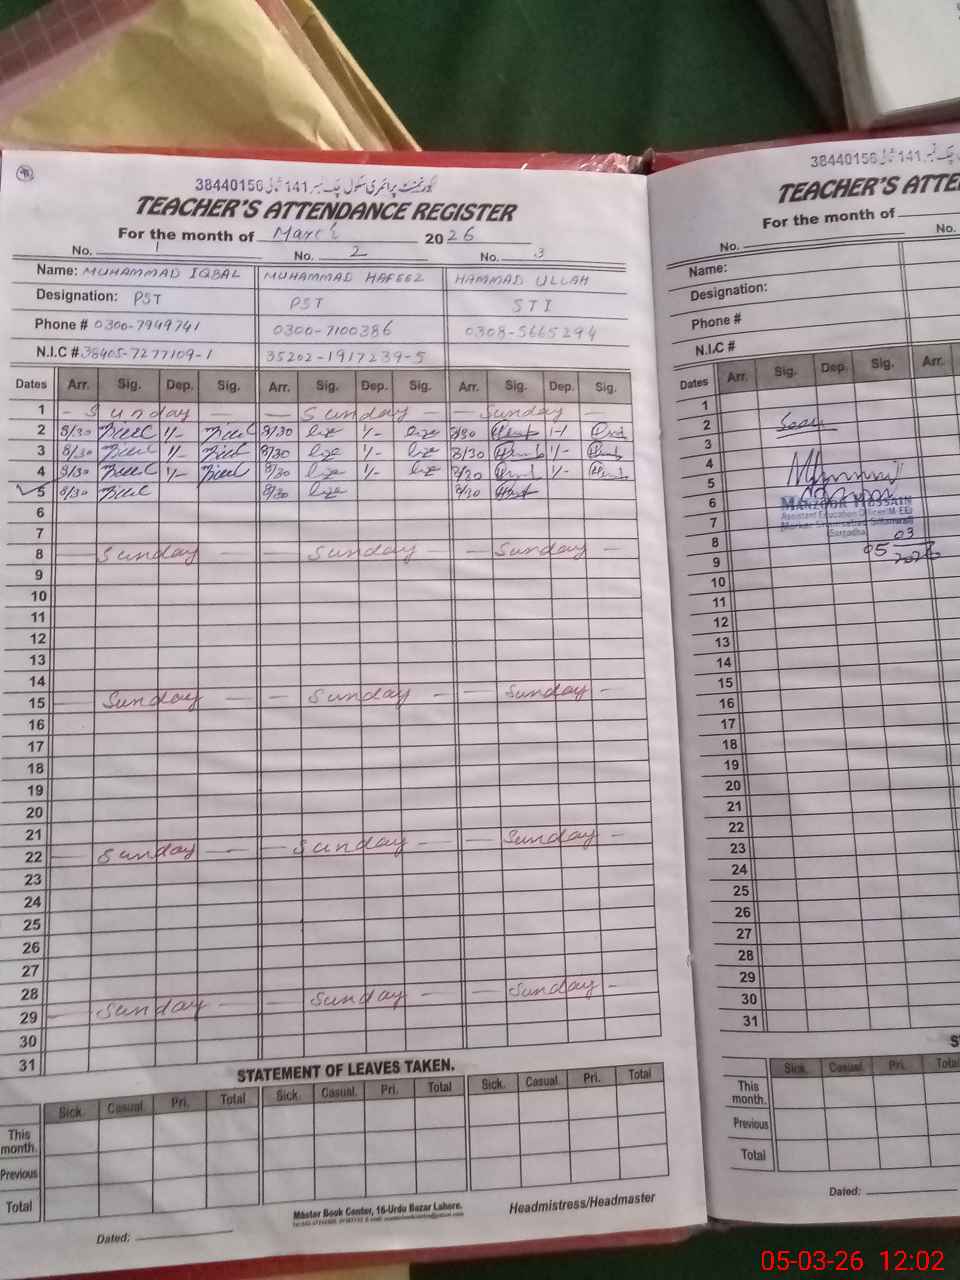 گورنمنٹ پرائمری سکول چک نمبر 141 شمالی 38440156
TEACHER'S ATTENDANCE REGISTER
For the month of March 2026
No. 1 No. 2 No. 3
Name: MUHAMMAD IQBAL MUHAMMAD HAFEEZ HAMMAD ULLAH
Designation: PST PST STI
Phone # 0300-7949741 0300-7100386 0308-5665294
N.I.C # 38405-7277109-1 35202-1917239-5
Dates Arr. Sig. Dep. Sig. Arr. Sig. Dep. Sig. Arr. Sig. Dep. Sig.
1 - Sunday - - Sunday - - Sunday -
2 8/30 1/- 8/30 1/- 8/30 1/-
3 8/30 1/- 8/30 1/- 8/30 1/-
4 8/30 1/- 8/30 1/- 8/30 1/-
5 8/30 8/30 8/30
6
7
8 Sunday - - Sunday - - Sunday -
9
10
11
12
13
14
15 Sunday - - Sunday - - Sunday -
16
17
18
19
20
21
22 Sunday - - Sunday - - Sunday -
23
24
25
26
27
28
29 Sunday - - Sunday - - Sunday -
30
31
STATEMENT OF LEAVES TAKEN.
Sick. Casual. Pri. Total Sick. Casual. Pri. Total Sick. Casual. Pri. Total
This month.
Previous
Total
Master Book Center, 16-Urdu Bazar Lahore.
Headmistress/Headmaster
Dated:
38440156 141
TEACHER'S ATTE
For the month of
No. No.
Name:
Designation:
Phone #
N.I.C #
Dates Arr. Sig. Dep. Sig. Arr.
1
2 Seen
3
4
5
6 MANZOOR HUSSAIN
7 Assistant Education Officer (M-EE)
8 Sargodha
9 05 03 2026
10
11
12
13
14
15
16
17
18
19
20
21
22
23
24
25
26
27
28
29
30
31
S
Sick. Casual. Pri. Total
This month.
Previous
Total
Dated:
05-03-26 12:02